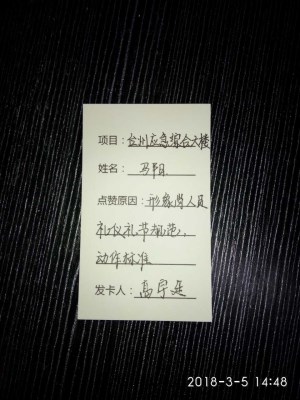 项目：台州应急综合大楼
姓名：马阳
点赞原因：形象岗人员
礼仪礼节规范，
动作标准
发卡人：高宇廷
2018-3-5 14:48